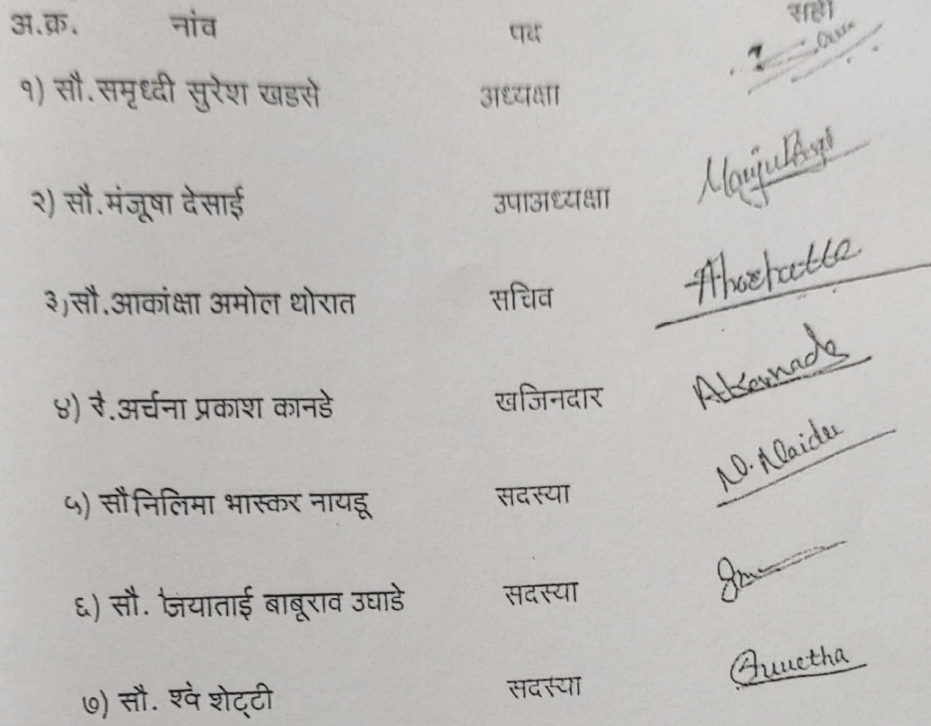 अ.क्र. नांव पद सही
१) सौ.समृध्दी सुरेश खडसे अध्यक्षा
२) सौ.मंजूषा देसाई उपाअध्यक्षा
३)सौ.आकांक्षा अमोल थोरात सचिव
४) रै.अर्चना प्रकाश कानडे खजिनदार AKanade
५) सौनिलिमा भास्कर नायडू सदस्या N. Naidu
६) सौ. जयाताई बाबूराव उघाडे सदस्या
७) सौ. श्वे शेट्टी सदस्या